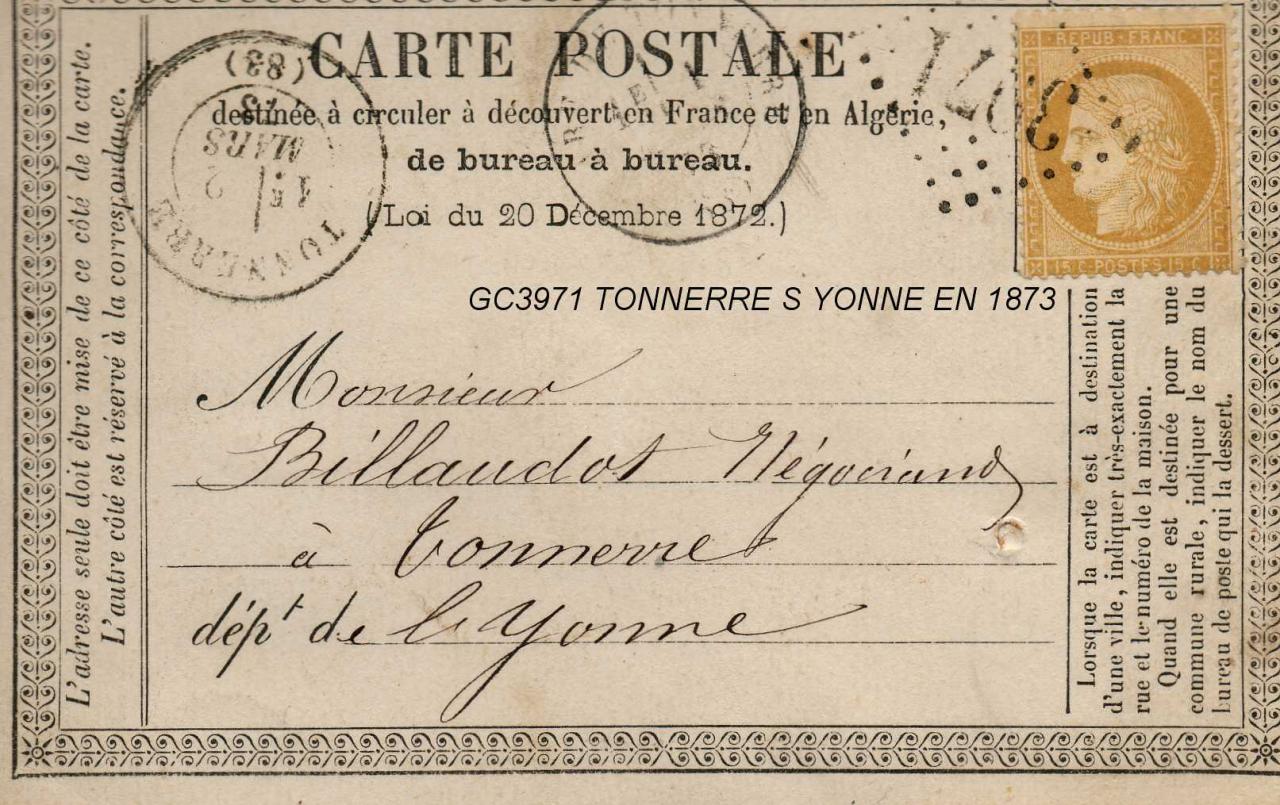 CARTE POSTALE
destinée à circuler à découvert en France et en Algérie,
de bureau à bureau.
(Loi du 20 Décembre 1872.)
(83)
73
MARS
2
15
TONNERRE
3971
REPUB · FRANC
15 C · POSTES 15 C
GC3971 TONNERRE S YONNE EN 1873
Monsieur
Billaudot Négociand
à Tonnerre
dépt de l'Yonne
L'adresse seule doit être mise de ce côté de la carte.
L'autre côté est réservé à la correspondance.
Lorsque la carte est à destination
d'une ville, indiquer très-exactement la
rue et le numéro de la maison.
Quand elle est destinée pour une
commune rurale, indiquer le nom du
bureau de poste qui la dessert.